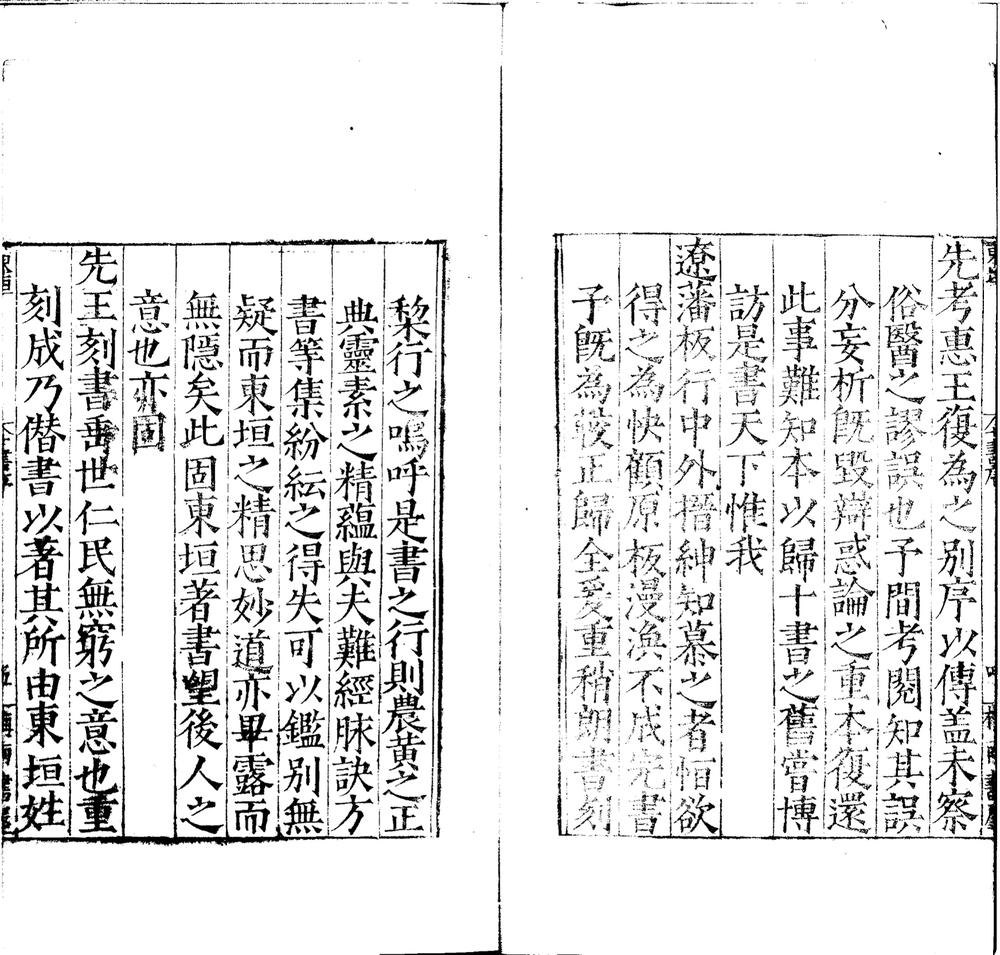 先考惠王復為之別序以傳盖未察
俗醫之謬誤也予間考閱知其誤
分妄析旣毀辯惑論之重本復還
此事難知本以歸十書之舊嘗博
訪是書天下惟我
遼藩板行中外搢紳知慕之者恒欲
得之為快顧原板漫渙不成完書
予旣為較正歸全爰重稍朗書刻
棃行之嗚呼是書之行則農黃之正
典靈素之精蘊與夫難經脉訣方
書等集紛紜之得失可以鑑別無
疑而東垣之精思妙道亦畢露而
無隱矣此固東垣著書望後人之
意也亦固
先王刻書垂世仁民無窮之意也重
刻成乃僭書以著其所由東垣姓